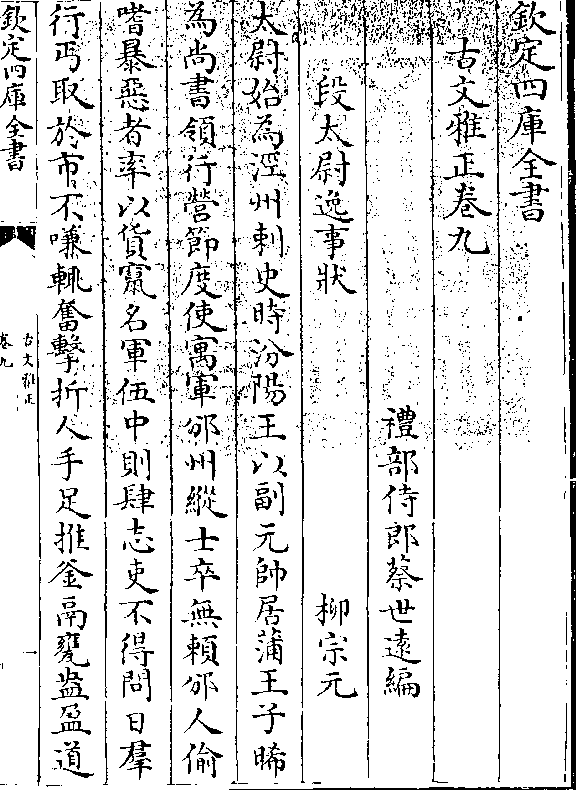 欽定四庫全書
古文雅正卷九
禮部侍郎蔡世遠編
段太尉逸事狀　柳宗元
太尉始為涇州刺史時汾陽王以副元帥居蒲王子晞
為尚書領行營節度使寓軍邠州縱士卒無賴邠人偷
嗜暴惡者率以貨竄名軍伍中則肆志吏不得問日羣
行丐取於市不嗛輒奮擊折人手足推釜鬲甕盎盈道
欽定四庫全書
古文雅正
卷九
一